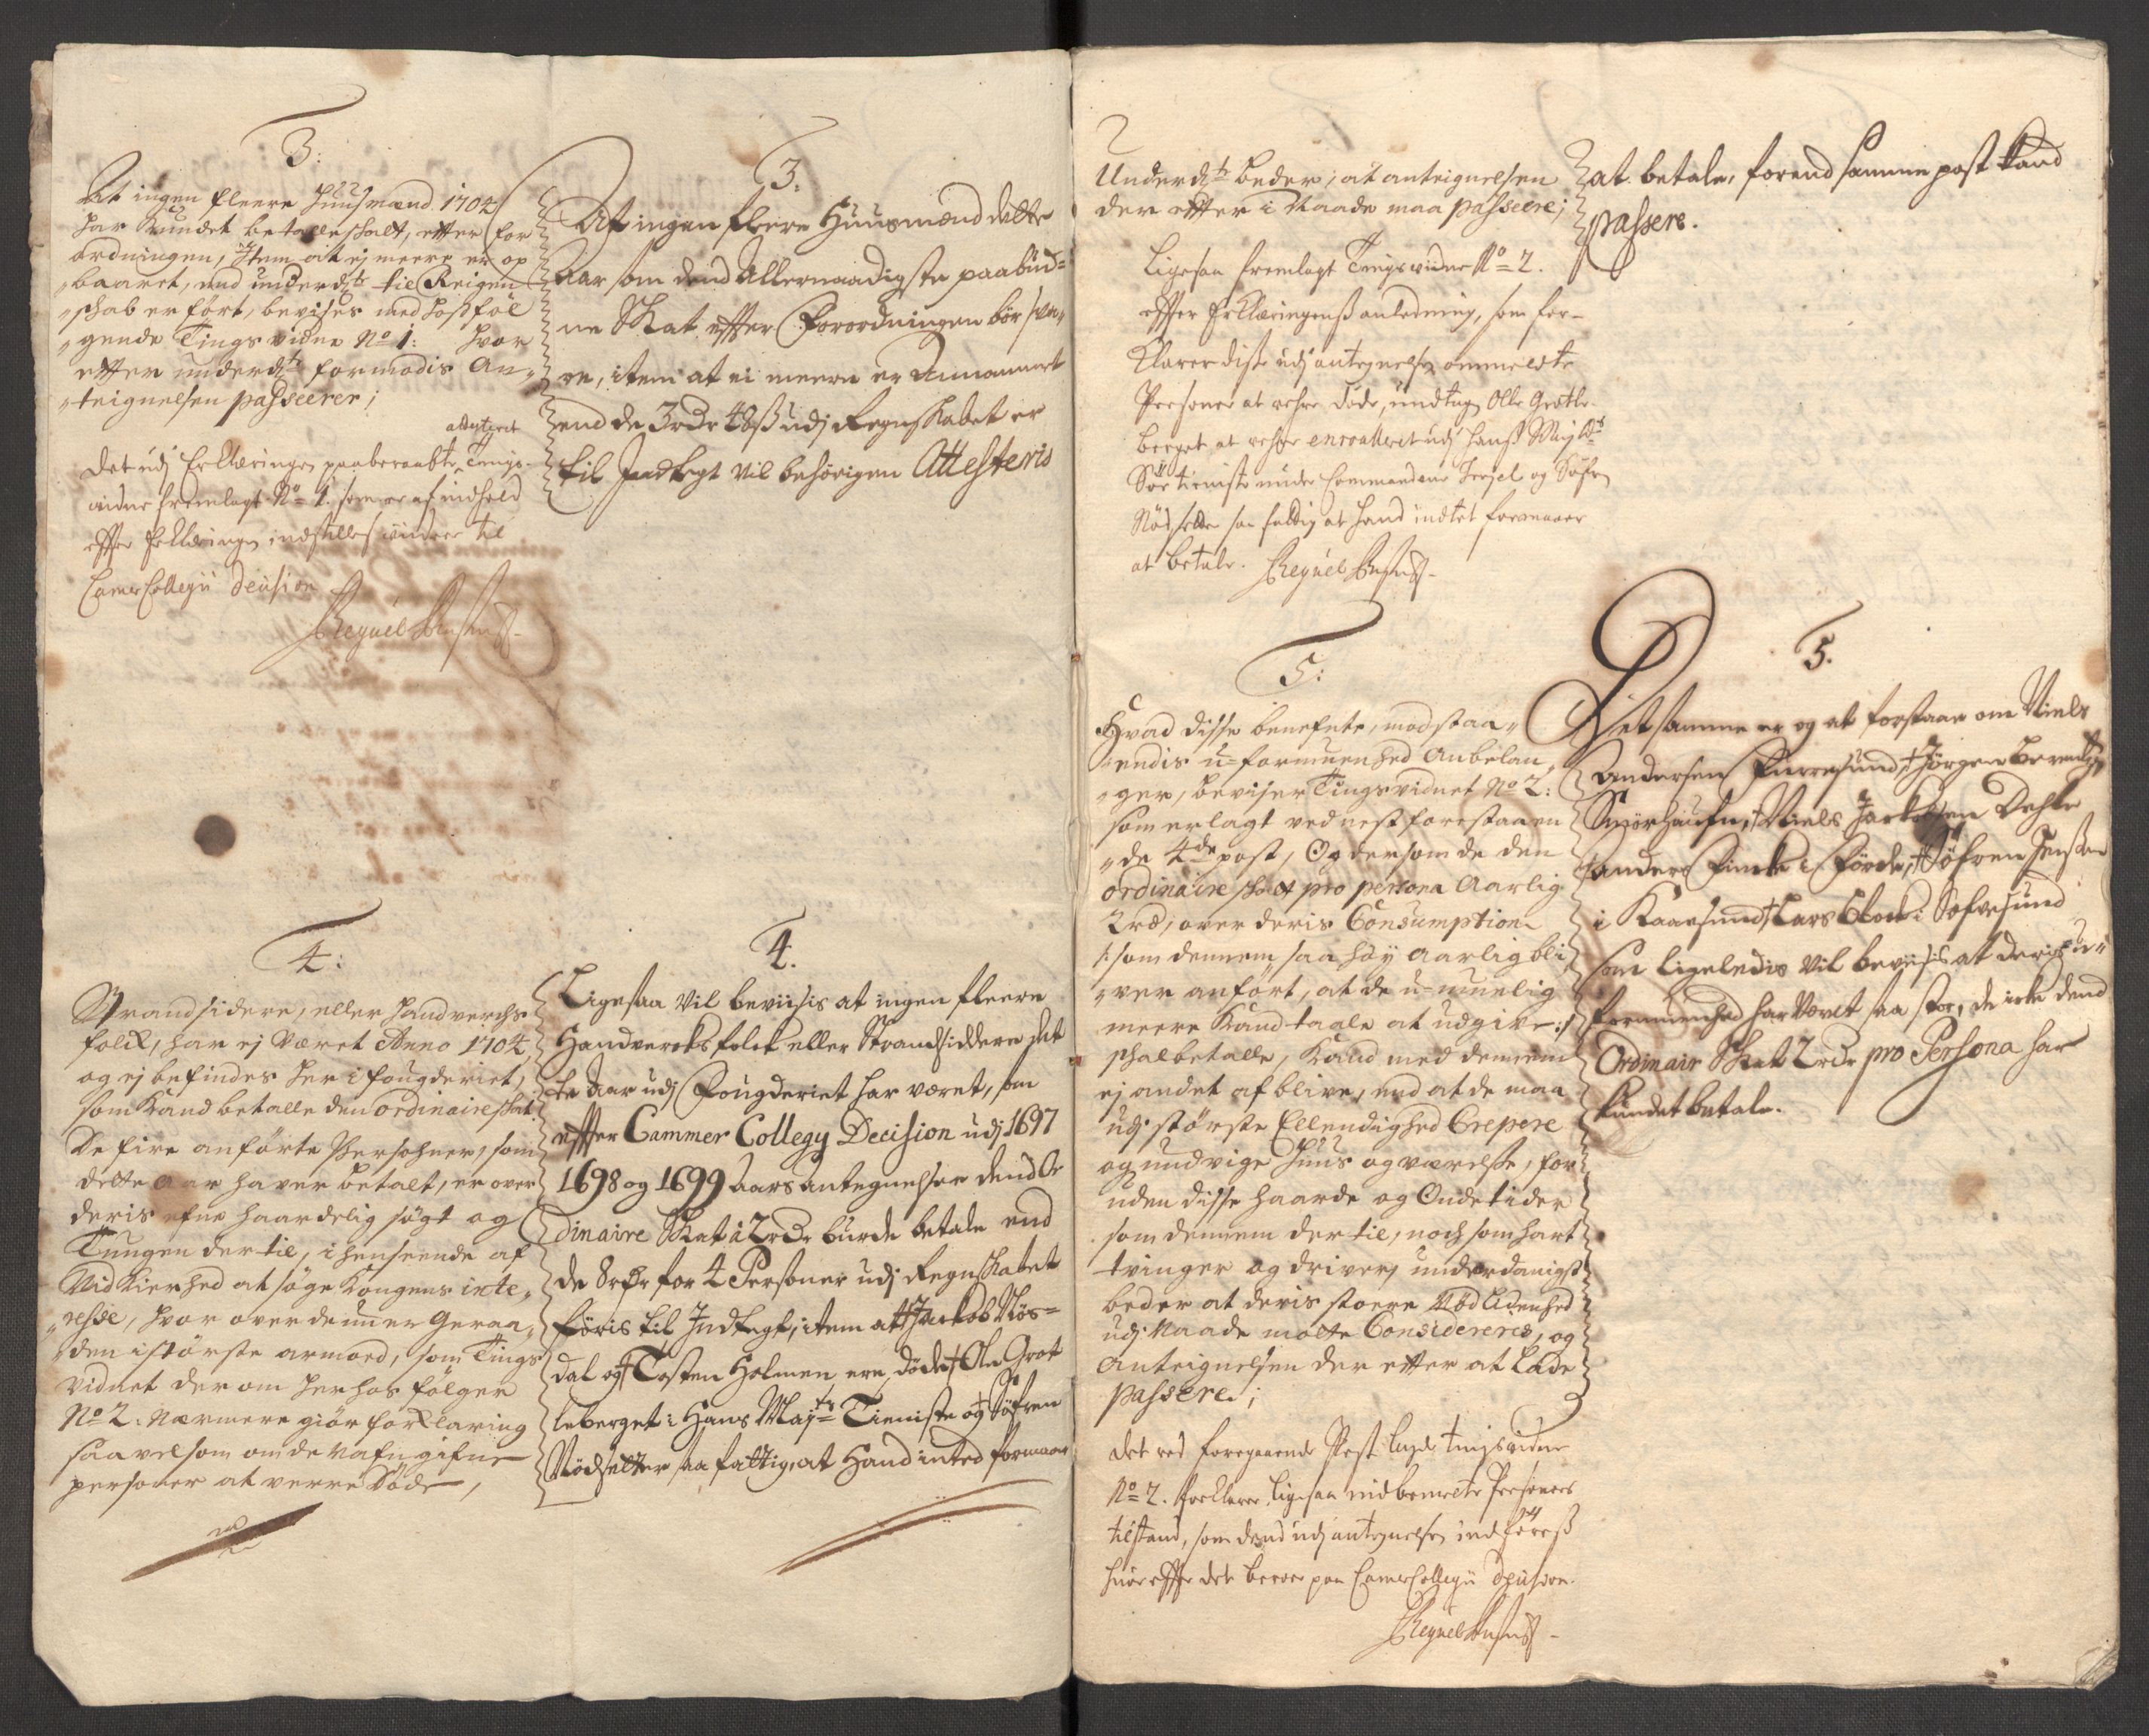 3:
At ingen fleere Huusmænd 1704
har kundet betalle skatt, efter for
ordningen, Item at ej meere er op
baaret, end underd: til Reigen
skab er ført, bevises med hosføl
gende Tingsvidne No 1: hvor
efter underd: formodis An
teignelsen passeerer;
attesteret
Det udj Erklæringen paaberaabte Tings-
vidne fremlagt No 1. som er af indhold
effter Erklæringen indstilles viidere til
CamerCollegij Decision
3.
At ingen fleere Huusmænd dette
Aar som dend Allernaadigste paabud=
ne Skat effter Forordningen bør sva-
re, item at ei meere er Annammet
end de 3 rdr 48 s udj Regnskabet er
til Indtegt vil behørigen Attesteris
4:
Strandsidere, eller handverchs
folck, har ej været Anno 1704
og ej befindes her i fougderiet,
som kand betalle den ordinaire skat
De fire anførte Persohner, som
dette Aar haver betalt, er over
deris efne haardelig søgt og
Tungen der til, i henseende af
Vid kierhed at søge Kongens inte-
resse, hvor over de nu er Geraa-
den i største armoed, som Tings
vidnet der om her hos følger
No 2. Nærmere giør forklaring
saavelsom om de Nafngifne
personer at verre Døde,
4.
Ligesaa vil beviisis at ingen fleere
Handvercksfolck eller Strandsiddere det
te Aar udj Fougderiet har været, som
effter Cammer Collegy Decision udj 1697
1698 og 1699 Aars antegnelser dend Or
dinaire Skat à 2 rdr burde betale end
de 8 rdr for 4 Personer udj Regnskabet
føris til Indtegt, item at Jackob Nøs=
dal og Tosten Holmen ere døde, Ole Grot
leberget i Hans Mayts Tieniste og Søfren
Nødseter saa fattig, at Hand inted formaar
Underd: beder, at anteignelsen
der effter i Naade maa passeere;
Ligesaa fremlagt Tingsvidne No 2.
effter Erklæringens anledning, som for-
klarer diste udj antegnelsen ommeldte
Personer at vehre døde, undtagen Olle Grotle-
berget at vehre enroulleret udj Hans Mayts
Søe tieniste under Commandeur og Søfren
Nødseter saa fattig at hand indtet formaaer
at betale.
at betale, forend samme post kand
passere.
5:
Hvad disse benefnte, modstaa-
endis u-formuenhed Anbelan
ger, beviser Tingsvidnet No 2:
som er lagt ved nest forestaaen
de 4de post, Og dersom de den
ordinaire skat pro persona Aarlig
2 rd, over deris Consumption
/: som dennem saa høy aarlig bli
ver anført, at de u-muelig
meere kand taale at udgive :/
skal betalle, kand med dennem
ej andet af blive, end at de maa
udj største Ellendighed Crepere
og undvige huus og værelse, for
uden disse haarde og Onde tider
som dennem der til, noch som hart
tvinger og driver underdanigst
beder at deris stoere Nødlidenhed
udj Naade motte Considereres, og
Anteignelsen der effter at Lade
passere;
Det ved foregaaende Post lagde tingsvidne
No 2. forklarer ligesaa midbemelte Personers
tilstand, som dend udj antegnelsen indføres
huor effter det beroer paa CamerCollegij Decision.
5.
Det samme er og at forstaae om Niels
Andersen Furresund, Jørgen
Niels Jackobsen Dehle
Anders Finde i Førde, Søfren Jensen
i Kaarsund, Lars Block i Sofvesund
som ligeledis vil beviisis at deris u-
formuenhed har været saa stor, de icke dend
Ordinair Skat 2 rdr pro Persona har
kundet betale.